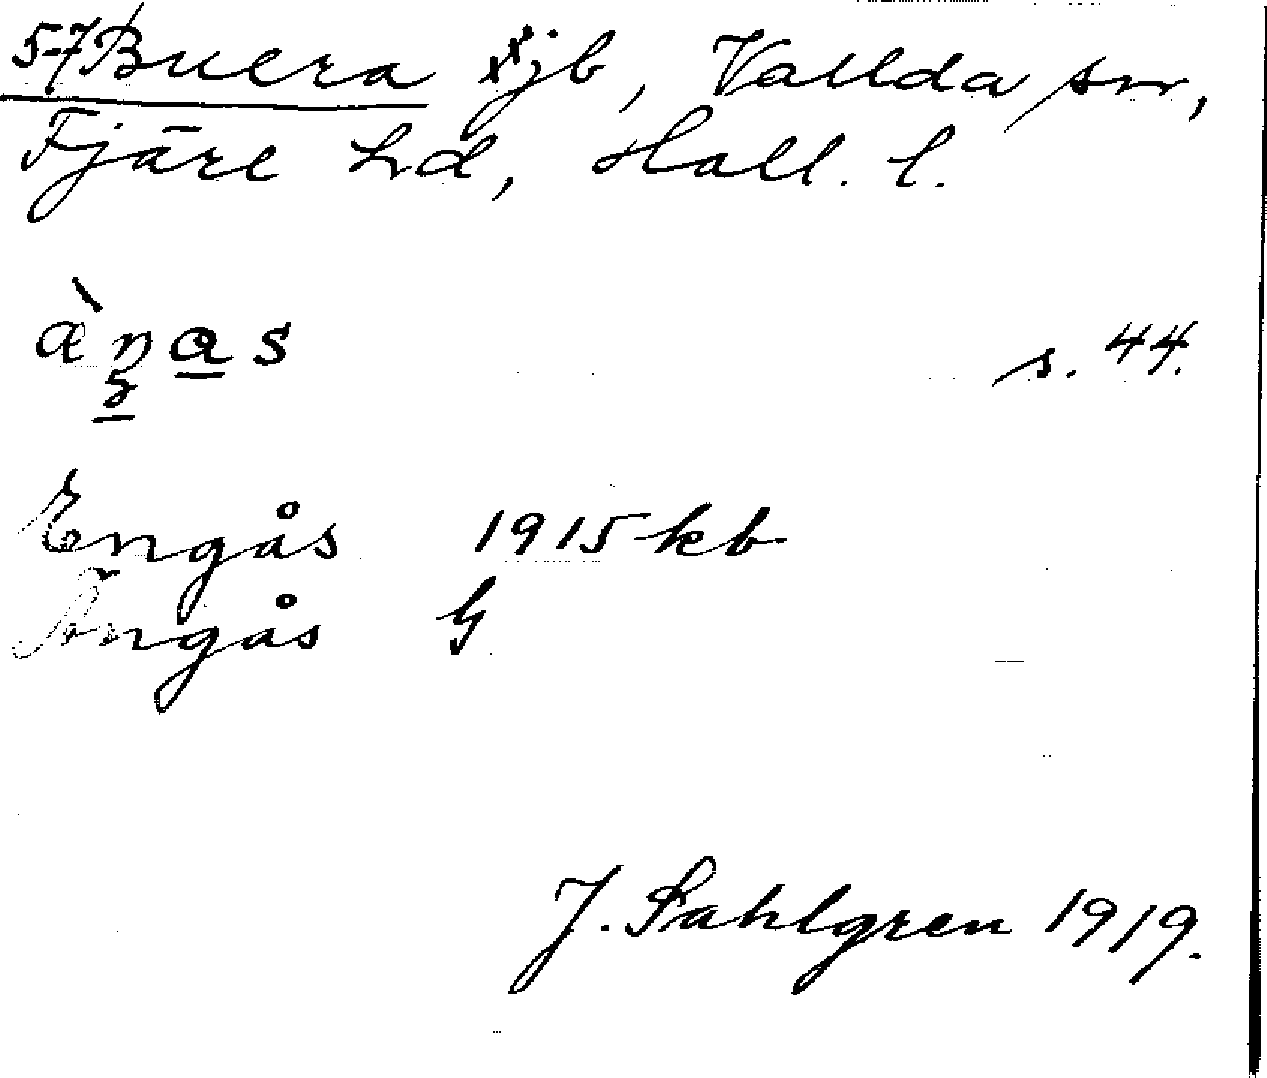 5-7 Buera xjb, Vallda sn,
Fjäre hd, Hall. l.
s. 44.
Engås 1915 kb
Ängås G
J. Sahlgren 1919.